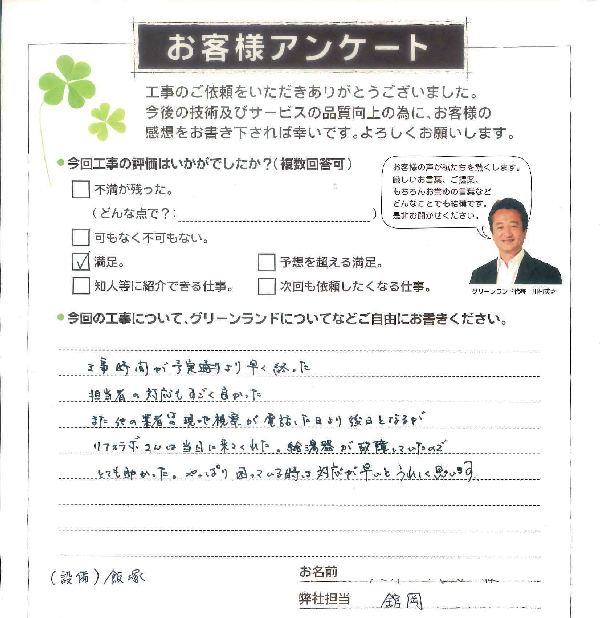 お客様アンケート
工事のご依頼をいただきありがとうございました。
今後の技術及びサービスの品質向上の為に、お客様の
感想をお書き下されば幸いです。よろしくお願いします。
●今回工事の評価はいかがでしたか?(複数回答可)
不満が残った。
(どんな点で?: )
可もなく不可もない。
満足。
予想を超える満足。
知人等に紹介できる仕事。
次回も依頼したくなる仕事。
お客様の声が私たちを熱くします。
厳しいお言葉、ご提案、
もちろんお褒めの言葉など
どんなことでも結構です。
是非お聞かせください。
グリーンランド代表
●今回の工事について、グリーンランドについてなどご自由にお書きください。
工事時間が予定通りより早く終った
担当者の対応もすごく良かった
また他の業者は現地視察が電話した日より後日となるが
リフォラボさんは当日に来てくれた。給湯器が故障していたので
とても助かった。やっぱり困っている時は対応が早いとうれしく思います
(設備)飯塚
お名前
弊社担当 舘岡